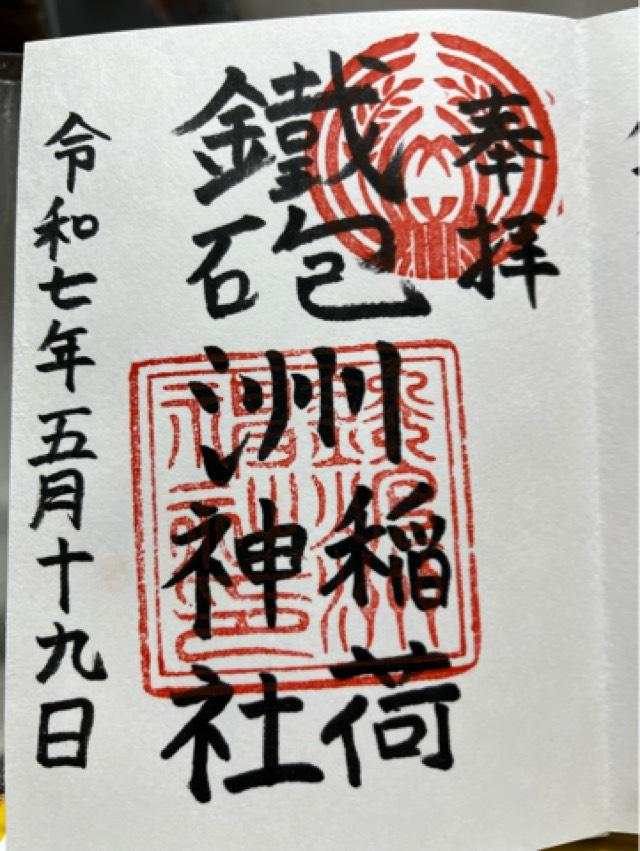 奉拝
鐵砲洲稲荷神社
令和七年五月十九日